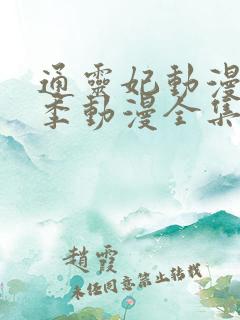 通靈妃動漫
季動漫全集
趙霞
未任同意禁止转载